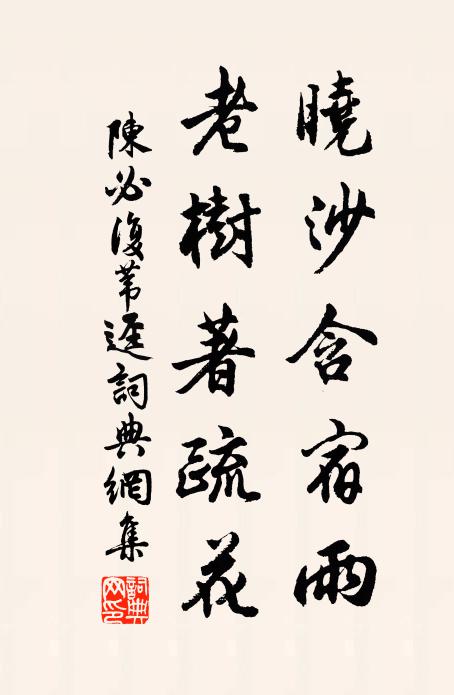 曉沙含宿雨
老樹著疏花
陳必復葦逕詞典網集
詞典網印